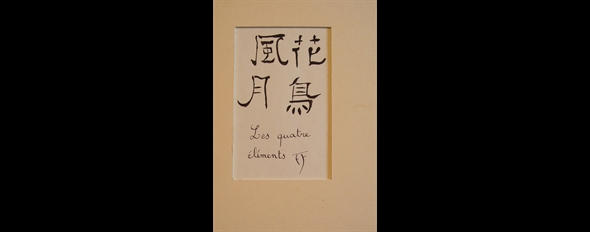 花鳥
風月
Les quatre
éléments